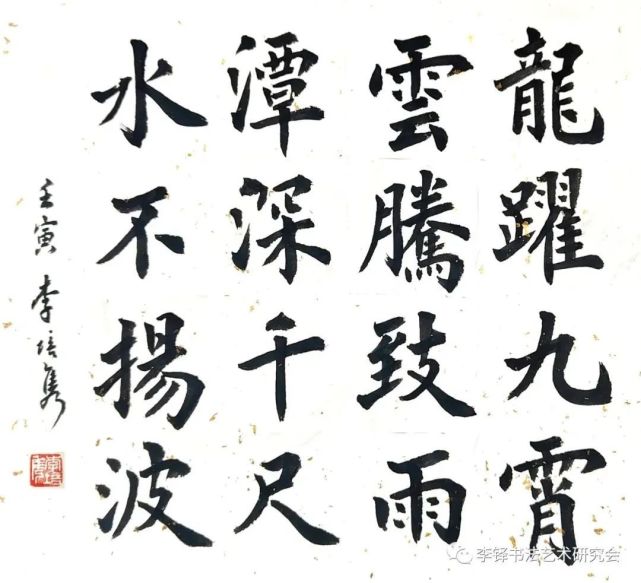 龍躍九霄
雲騰致雨
潭深千尺
水不揚波
壬寅 李培隽
李铎书法艺术研究会